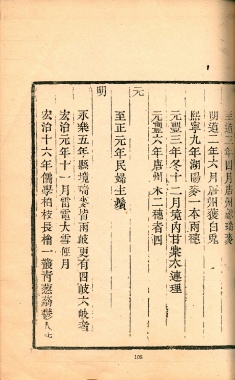 至道二年四月唐州
明道二年六月唐州獲白兎
熙寧九年湖陽麥一本兩穗
元豐三年冬十二月境內甘棠木連理
元豐六年唐州木二穗者四
元
至正元年民婦生鬚
明
永樂五年縣境瑞麥皆兩岐更有四岐六岐者
宏治元年十一月雷電大雪經月
宏治十六年儒學柏枝長檜一叢青葱
108